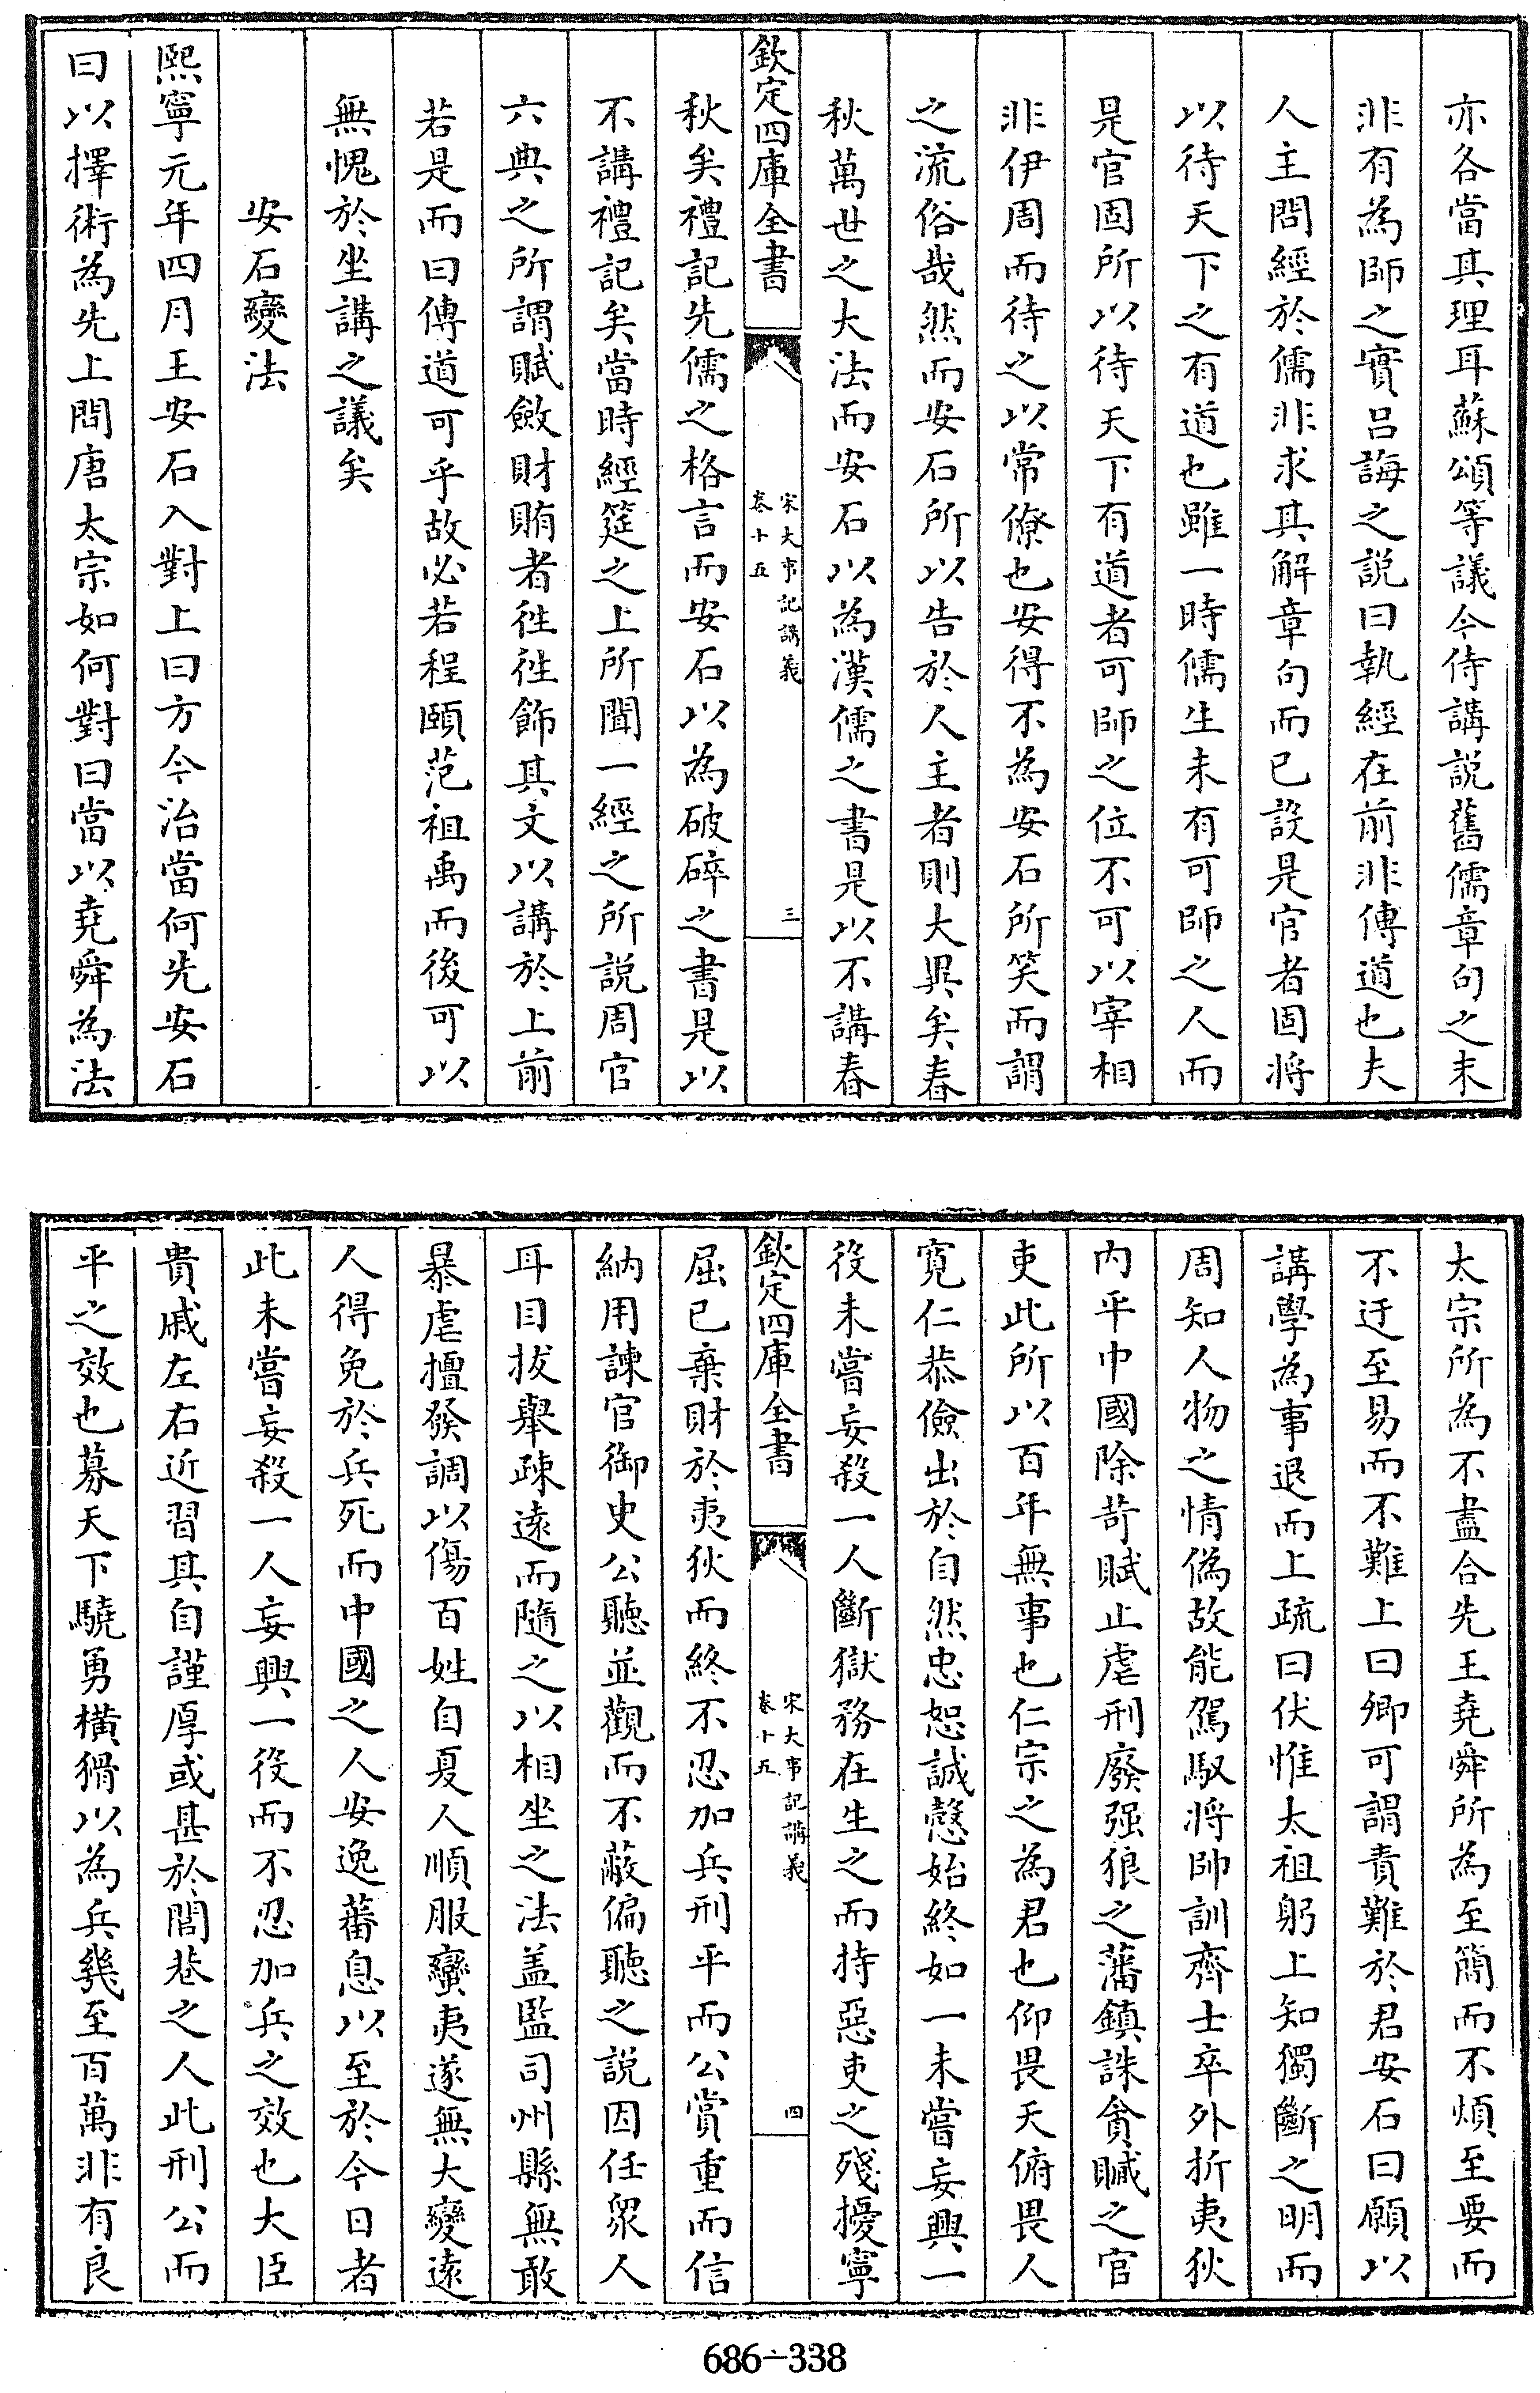 亦各當其理耳蘇頌等議今侍講説舊儒章句之末
非有為師之實吕誨之説曰執經在前非傳道也夫
人主問經於儒非求其解章句而已設是官者固將
以待天下之有道也雖一時儒生未有可師之人而
是官固所以待天下有道者可師之位不可以宰相
非伊周而待之以常僚也安得不為安石所笑而謂
之流俗哉然而安石所以告於人主者則大異矣春
秋萬世之大法而安石以為漢儒之書是以不講春
欽定四庫全書
宋大事記講義
卷十五
三
秋矣禮記先儒之格言而安石以為破碎之書是以
不講禮記矣當時經筵之上所聞一經之所説周官
六典之所謂賦斂財賄者徃徃飾其文以講於上前
若是而曰傳道可乎故必若程頤范祖禹而後可以
無愧於坐講之議矣
安石變法
熙寧元年四月王安石入對上曰方今治當何先安石
曰以擇術為先上問唐太宗如何對曰當以堯舜為法
太宗所為不盡合先王堯舜所為至簡而不煩至要而
不迂至易而不難上曰卿可謂責難於君安石曰願以
講學為事退而上疏曰伏惟太祖躬上知獨斷之明而
周知人物之情偽故能駕馭將帥訓齊士卒外折夷狄
内平中國除苛賦止虐刑廢强狼之藩鎮誅貪贓之官
吏此所以百年無事也仁宗之為君也仰畏天俯畏人
寛仁恭儉出於自然忠恕誠慤始終如一未嘗妄興一
役未嘗妄殺一人斷獄務在生之而持惡吏之殘擾寧
欽定四庫全書
宋大事記講義
卷十五
四
屈已棄財於夷狄而終不忍加兵刑平而公賞重而信
納用諫官御史公聽並觀而不蔽偏聽之説因任衆人
耳目拔舉疎逺而隨之以相坐之法盖監司州縣無敢
暴虐擅發調以傷百姓自夏人順服蠻夷遂無大變逺
人得免於兵死而中國之人安逸蕃息以至於今日者
此未嘗妄殺一人妄興一役而不忍加兵之效也大臣
貴戚左右近習其自謹厚或甚於閭巷之人此刑公而
平之效也募天下驍勇横猾以為兵幾至百萬非有良
686-338